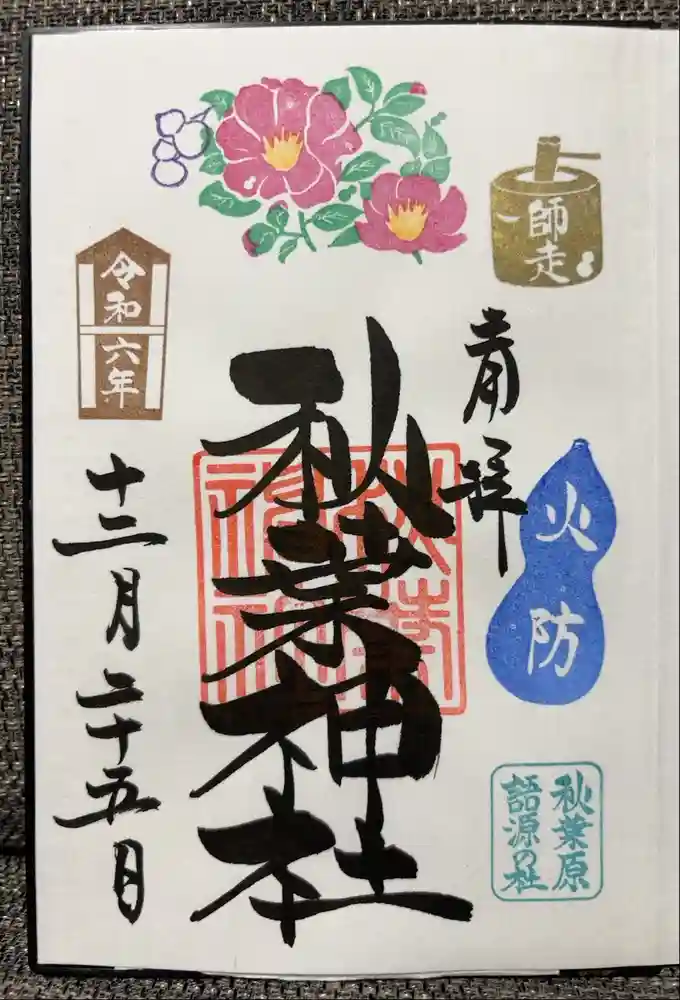 師走
奉拝
火防
秋葉原
語源の社
秋葉神社
令和六年
十二月二十五日